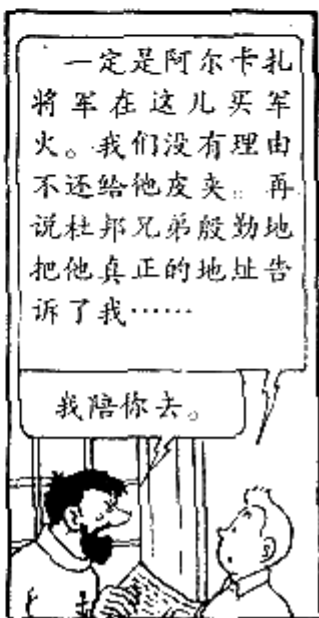 一定是阿尔卡扎
将军在这儿买军
火。我们没有理由
不还给他皮夹。再
说杜邦兄弟殷勤地
把他真正的地址告
诉了我……
我陪你去。